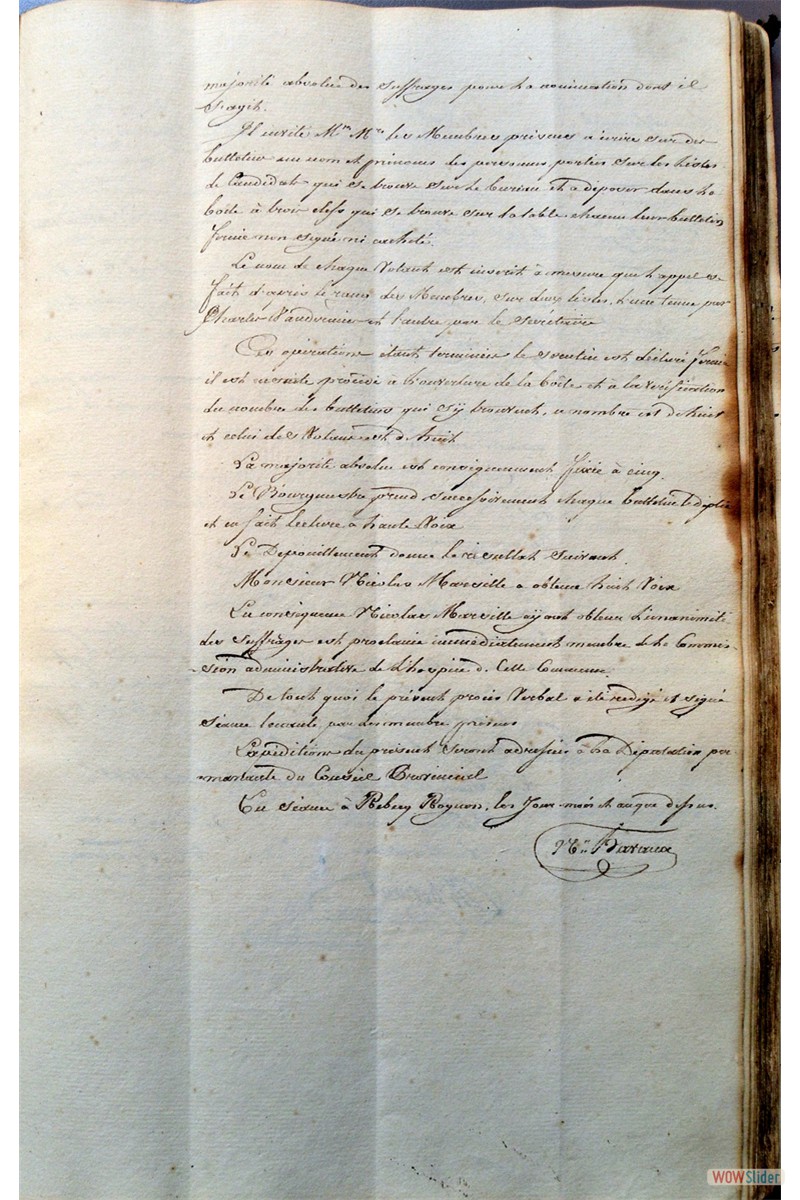 majorité absolue des suffrages pour la nomination dont il
s'agit.
Il invite M.rs M.rs les Membres présens a écrire sur des
bulletins un nom et prénoms des personnes portées sur les listes
de Candidats qui se trouve sur le bureau et a déposer dans la
boîte à trois clefs qui se trouve sur la table chacun leur bulletin
fermé non signé ni cacheté.
Le nom de chaque Votant est inscrit à mesure que l'appel se
fait d'après le rang des Membres, sur deux listes, l'une tenue par
Charles et l'autre par le Secrétaire
Ces operations étant terminées le scrutin est déclaré fermé
il est ensuite procédé à l'ouverture de la boîte et à la vérification
du nombre des bulletins qui s'y trouvent, ce nombre est de huit
et celui des Votans est d. huit
La majorité absolue est conséquemment fixée à cinq.
Le Bourgmestre prend successivement chaque bulletin le déplie
et en fait lecture à haute Voix
Le Dépouillement donne le résultat suivant.
Monsieur Nicolas Marville a obtenu huit Voix
En conséquence Nicolas Marville aÿant obtenu l'unanimité
des suffrages est proclamé immédiatement membre de la Commis-
-sion administrative de l'hospice d. Cette Commune
De tout quoi le présent procès Verbal a été rédigé et signé
séance tenante, par les membres présens
Expéditions du présent seront adressées à la Députation per-
-manente du Conseil Provincial
En séance à Rebecq Rognon, les Jour mois et an que dessus.